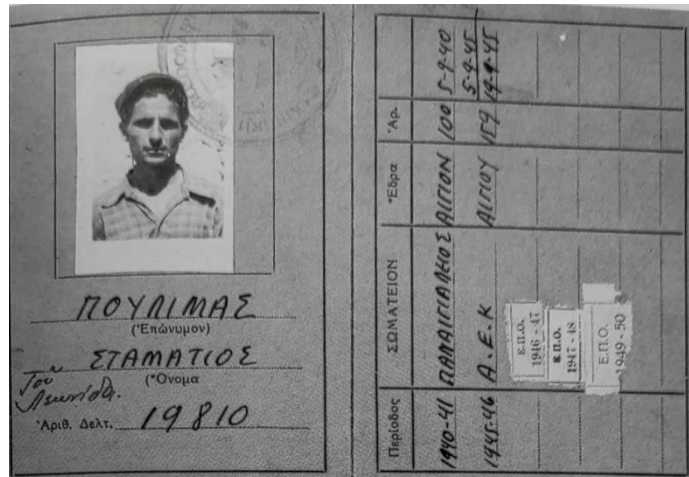 ΠΟΥΛΙΜΑΣ
(Ἐπώνυμον)
ΣΤΑΜΑΤΙΟΣ
(Ὄνομα
Τοῦ Λεωνίδα.
Ἀριθ. Δελτ. 19810
Περίοδος ΣΩΜΑΤΕΙΟΝ Ἕδρα Ἀρ.
1940-41 ΠΑΝΑΙΓΙΑΛΕΙΟΣ ΑΙΓΙΟΝ 100 5-9-40
1945-46 Α.Ε.Κ ΑΙΓΙΟΥ 159
Ε.Π.Ο.
1946-47
Ε.Π.Ο.
1947-48
Ε.Π.Ο.
1949-50